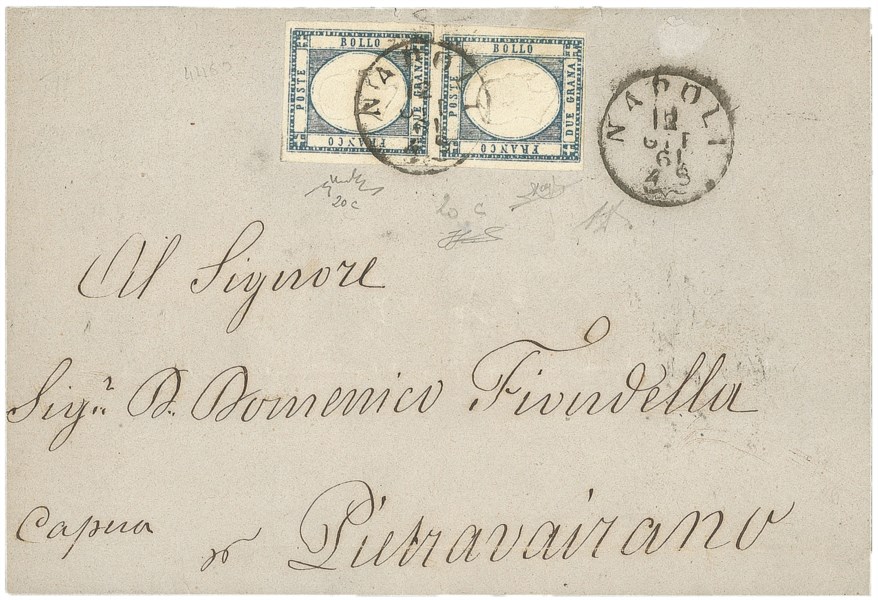 BOLLO
POSTE
DUE GRANA
FRANCO
BOLLO
POSTE
DUE GRANA
FRANCO
NAPOLI
NAPOLI
12
OTT
61
4 S
20 c
20 c
Al Signore
Sig.r D. Domenico Fiondella
Capua
per Pietravairano